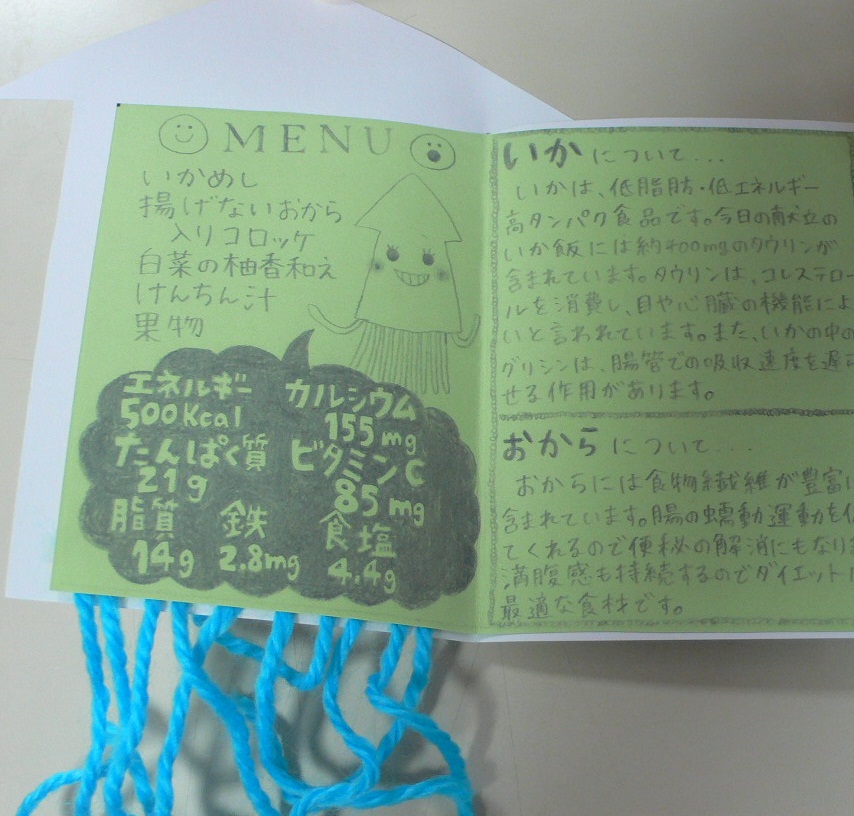 MENU
いかめし
揚げないおから
入りコロッケ
白菜の柚香和え
けんちん汁
果物
エネルギー
500Kcal
カルシウム
155mg
たんぱく質
21g
ビタミンC
85mg
脂質
14g
鉄
2.8mg
食塩
4.4g
いかについて...
いかは、低脂肪・低エネルギー
高タンパク食品です。今日の献立の
いか飯には約400mgのタウリンが
含まれています。タウリンは、コレステロー
ルを消費し、目や心臓の機能によ
いと言われています。また、いかの中の
グリシンは、腸管での吸収速度を遅ら
せる作用があります。
おからについて...
おからには食物繊維が豊富に
含まれています。腸の蠕動運動を
てくれるので便秘の解消にもなり
満腹感も持続するのでダイエット
最適な食材です。